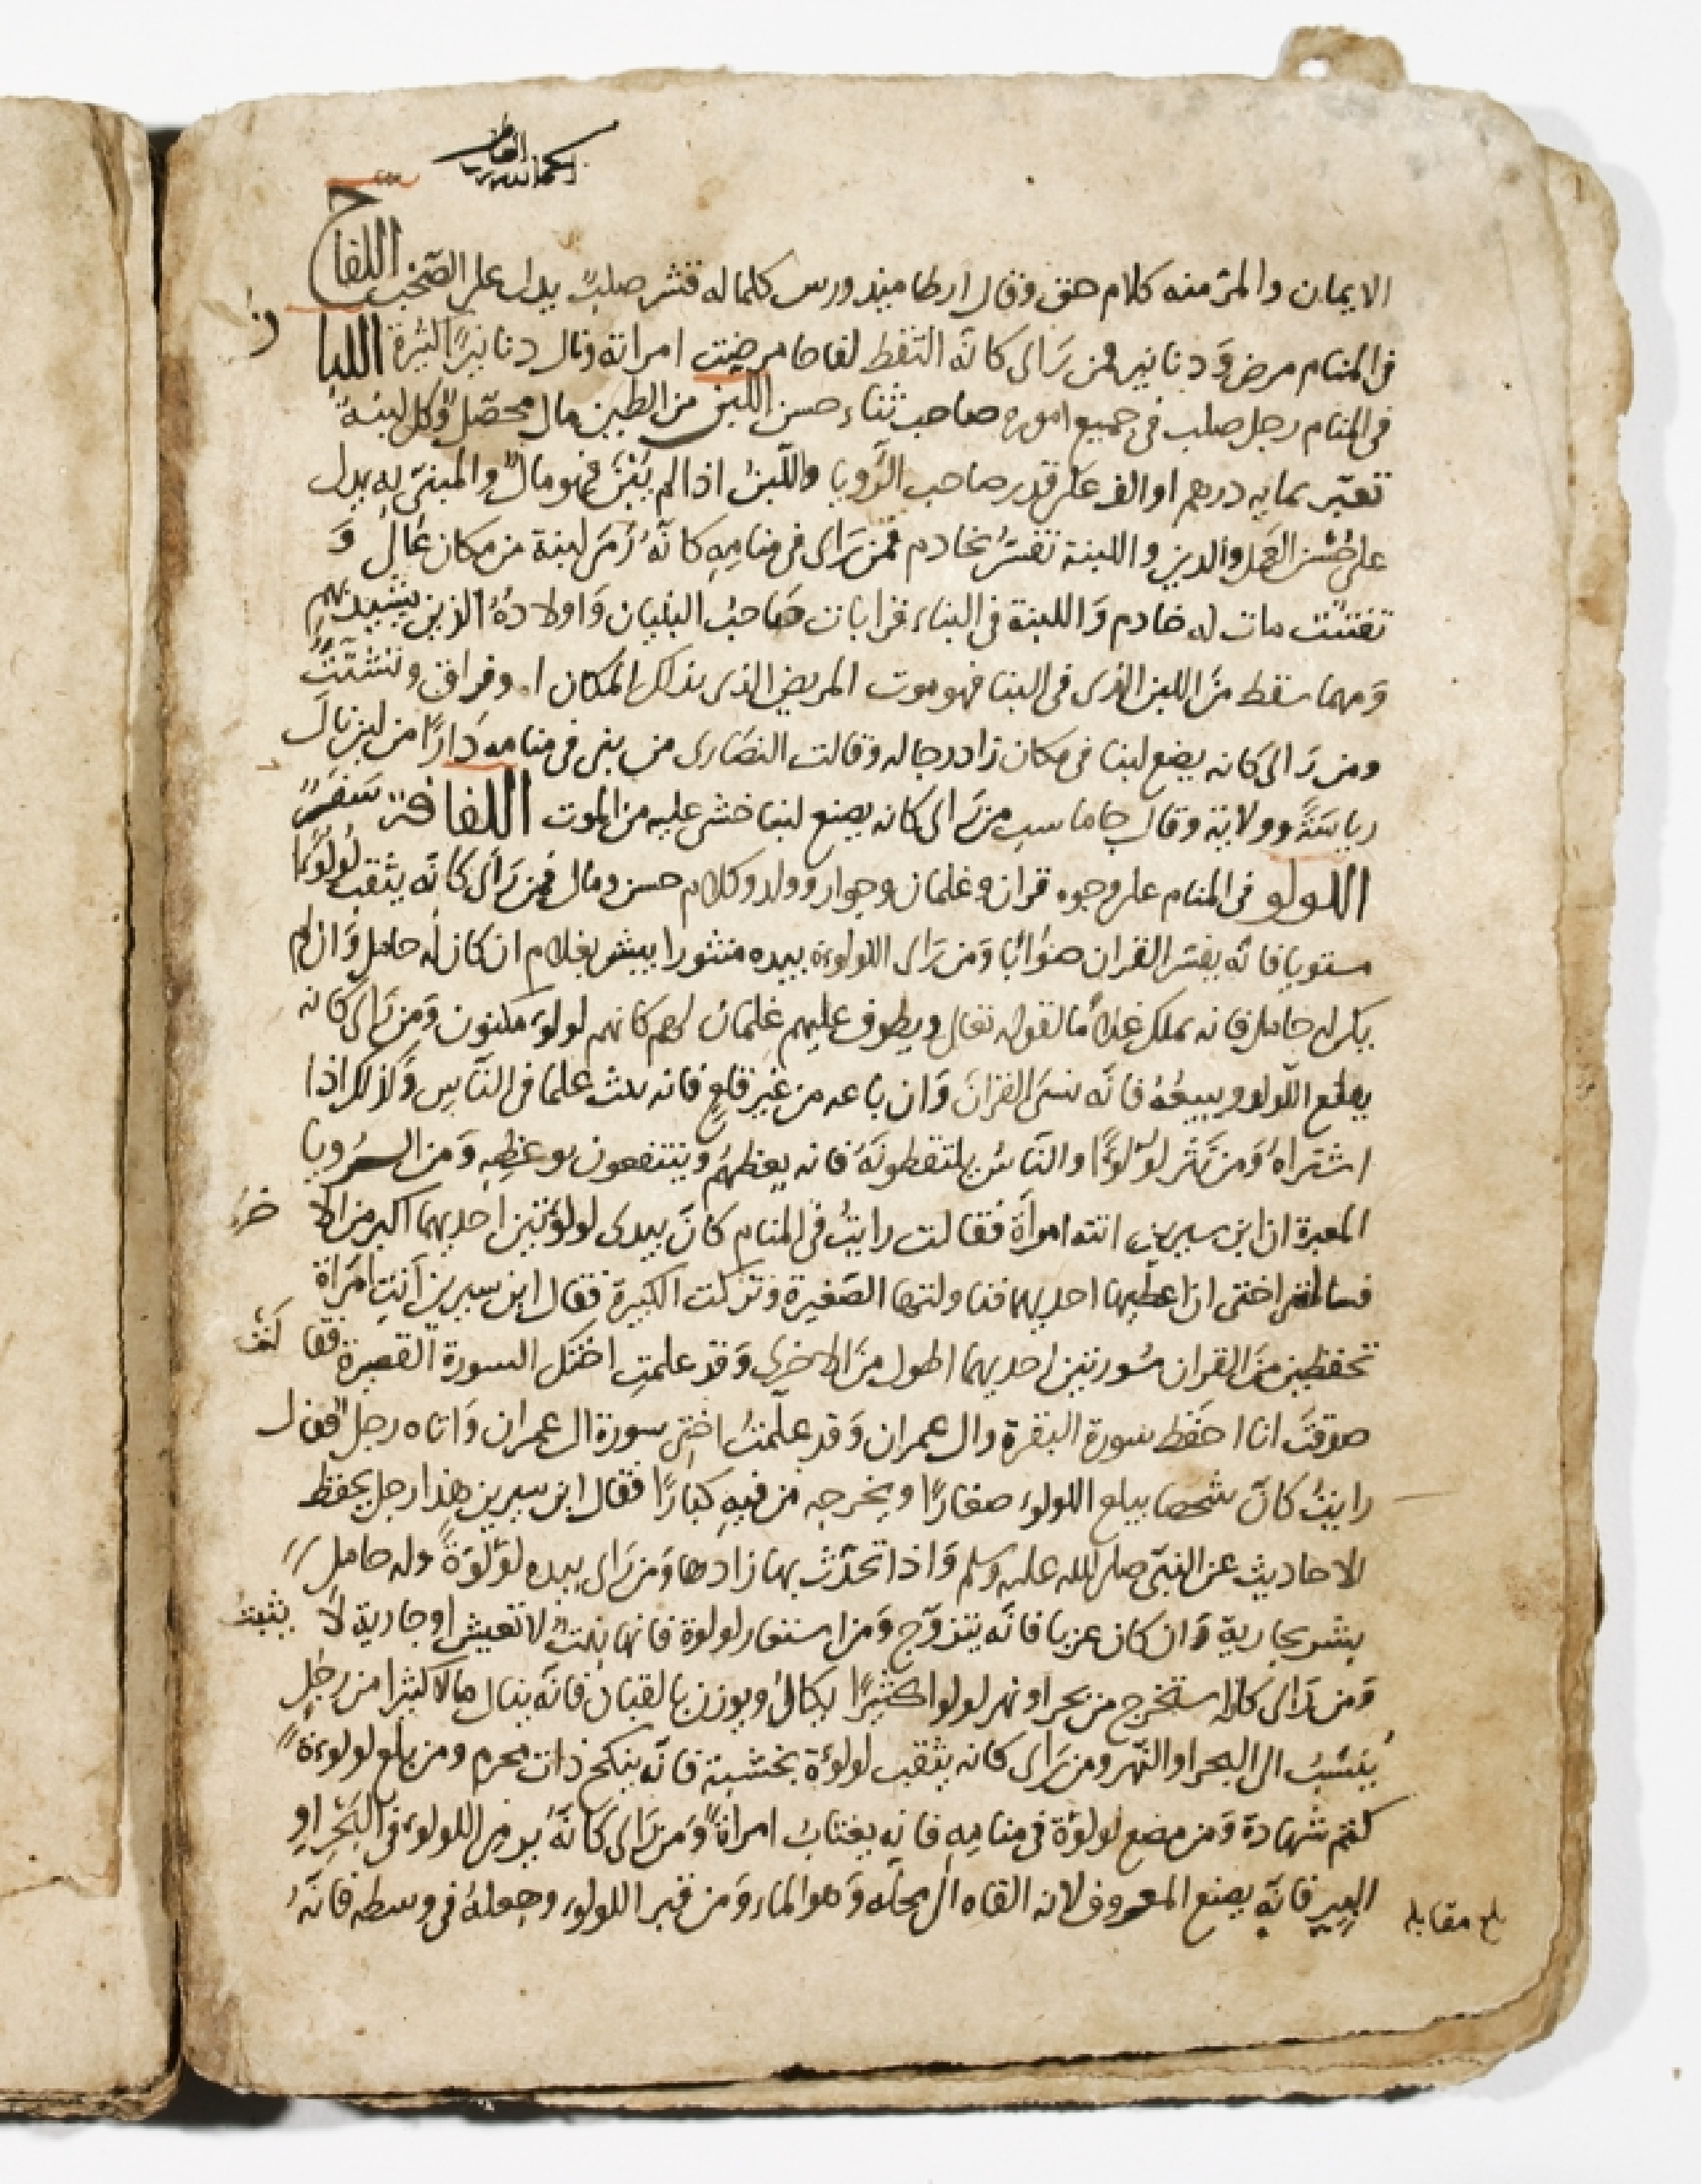 الحمد لله رب العالمين
الايمان والمر منه كلام حق وقال ارطاميدورس كلما له قشر صلب يدل على الصخب اللفاح
فى المنام مرض وَدنانير فمن رَاى كانّه التقط لفاحا مرضت امراته ونال دنانيرًا كثيرة اللبن
فى المنام رجل صلب فى جميع اموره صاحب ثناء حسن اللبن من الطين مال محصّل وكل لبنة
تعبّر بمايه درهم او الف على قدر صاحب الرُّويا واللّبن اذا لم يُبْنَ فهو مال والمبنىّ به يدل
على حُسْن العمل والدين واللبنة تفسّرُ بخادم فمن رَاى فى منامِهِ كانّهُ رُمىَ لبنة من مكان عالٍ وَ
تفتتت مات له خادم وَاللبنة فى البناء قرابات صَاحبُ البنيان وَاولادُهُ الذين يشيد بهم
وَمهما سقط منَ اللبن الذى فى البنا فهو موت المريض الذى بذلك المكان او فراق وتشتّت
ومن رَاى كانه يضع لبنا فى مكان زاد رجاله وقالت النصَارى من بنى فى منامه دَارًا من لبن نالَ
رياسَةً وولاية وقال جاماسب من رَاى كانه يصنع لبنا خشى عليه من الموت اللفافة سَفَرٌ
اللولو فى المنام على وجوه قران وغلمان وجوار وولد وكلام حسن ومال فمن رَاى كانّه يثقب لُولُوًا
مستويا فانّه يفسّر القران صوابًا وَمن رَاى اللولوة بيده منثورا يبشر بغلام ان كان له حامل وَان لم
يكن له حامل فانه يملك غلامًا لقوله تعالى ويطوف عليهم غلمان لهم كانهم لولوء مكنون وَمن رَاى كانه
يقلع اللّولو ويبيعُهُ فانّه نسىَ القرانَ وَان باعه من غير قلعٍ فانه يبث علما فى النّاس وَكذلك اذا
اشتراهُ وَمن نَثر لوْلوًا والنّاسُ يلتقطونَهُ فانه يعظهُم وينتفعون بوعظِهِ وَمن الرُويا
المعبرة ان ابن سيرين اتته امرأة فقالت رايتُ فى المنام كانَ بيدى لولؤتين احديهما اكبر من الاخرى
فسالتنى اختى ان اعطيها احديهما فناولتها الصَغيرة وتركت الكبيرة فقال ابن سيرين اَنتِ امرَاة
تحفظين منَ القران سُورتين احديهما اطول منَ الاخرى وَقد علمتِ اختكِ السورة القصيرة فقالت
صدقتَ انا احفظ سورة البقرة وال عمران وَقد علّمتُ اختى سورة ال عمران وَاتاه رجل فقال
رايتُ كانّ شخصا يبلع اللولوء صغارًا ويخرجه من فيهِ كبارًا فقال ابن سيرين هذا رجل يحفظ
الاحاديث عن النبّى صلى الله عليه وسلم وَاذا تحدّث بها زادها وَمن رَاى بيده لوْلوَةً وله حامل
بشر بجارية وَان كان عزبا فانّه يتزوّج وَمن استعار لولوة فانها بنتٌ لا تعيش او جارية لا يثبت
وَمن رَاى كانّه استخرج من بحر او نهر لولوا كثيرًا يكالُ ويوزن بالقبان فانّه ينال مالا كثيرا من رجلٍ
يُنسَبُ الى البحر او النّهر ومن رَاى كانه يثقب لولوءة بخشبة فانّه ينكح ذات محرم ومن بلع لولوءةً
كتم شهادة وَمن مضع لولوْة فى منامِهِ فانه يغتابُ امراةً وَمن رَاى كانّهُ يرمى اللولوء فى البَحْر اوِ
البير فانّه يصنع المعروف لانه القاه الى محلّه وَهو الماء وَمن قبر اللولوء وجعلهُ فى وسطه فانّهُ
بلغ مقابله